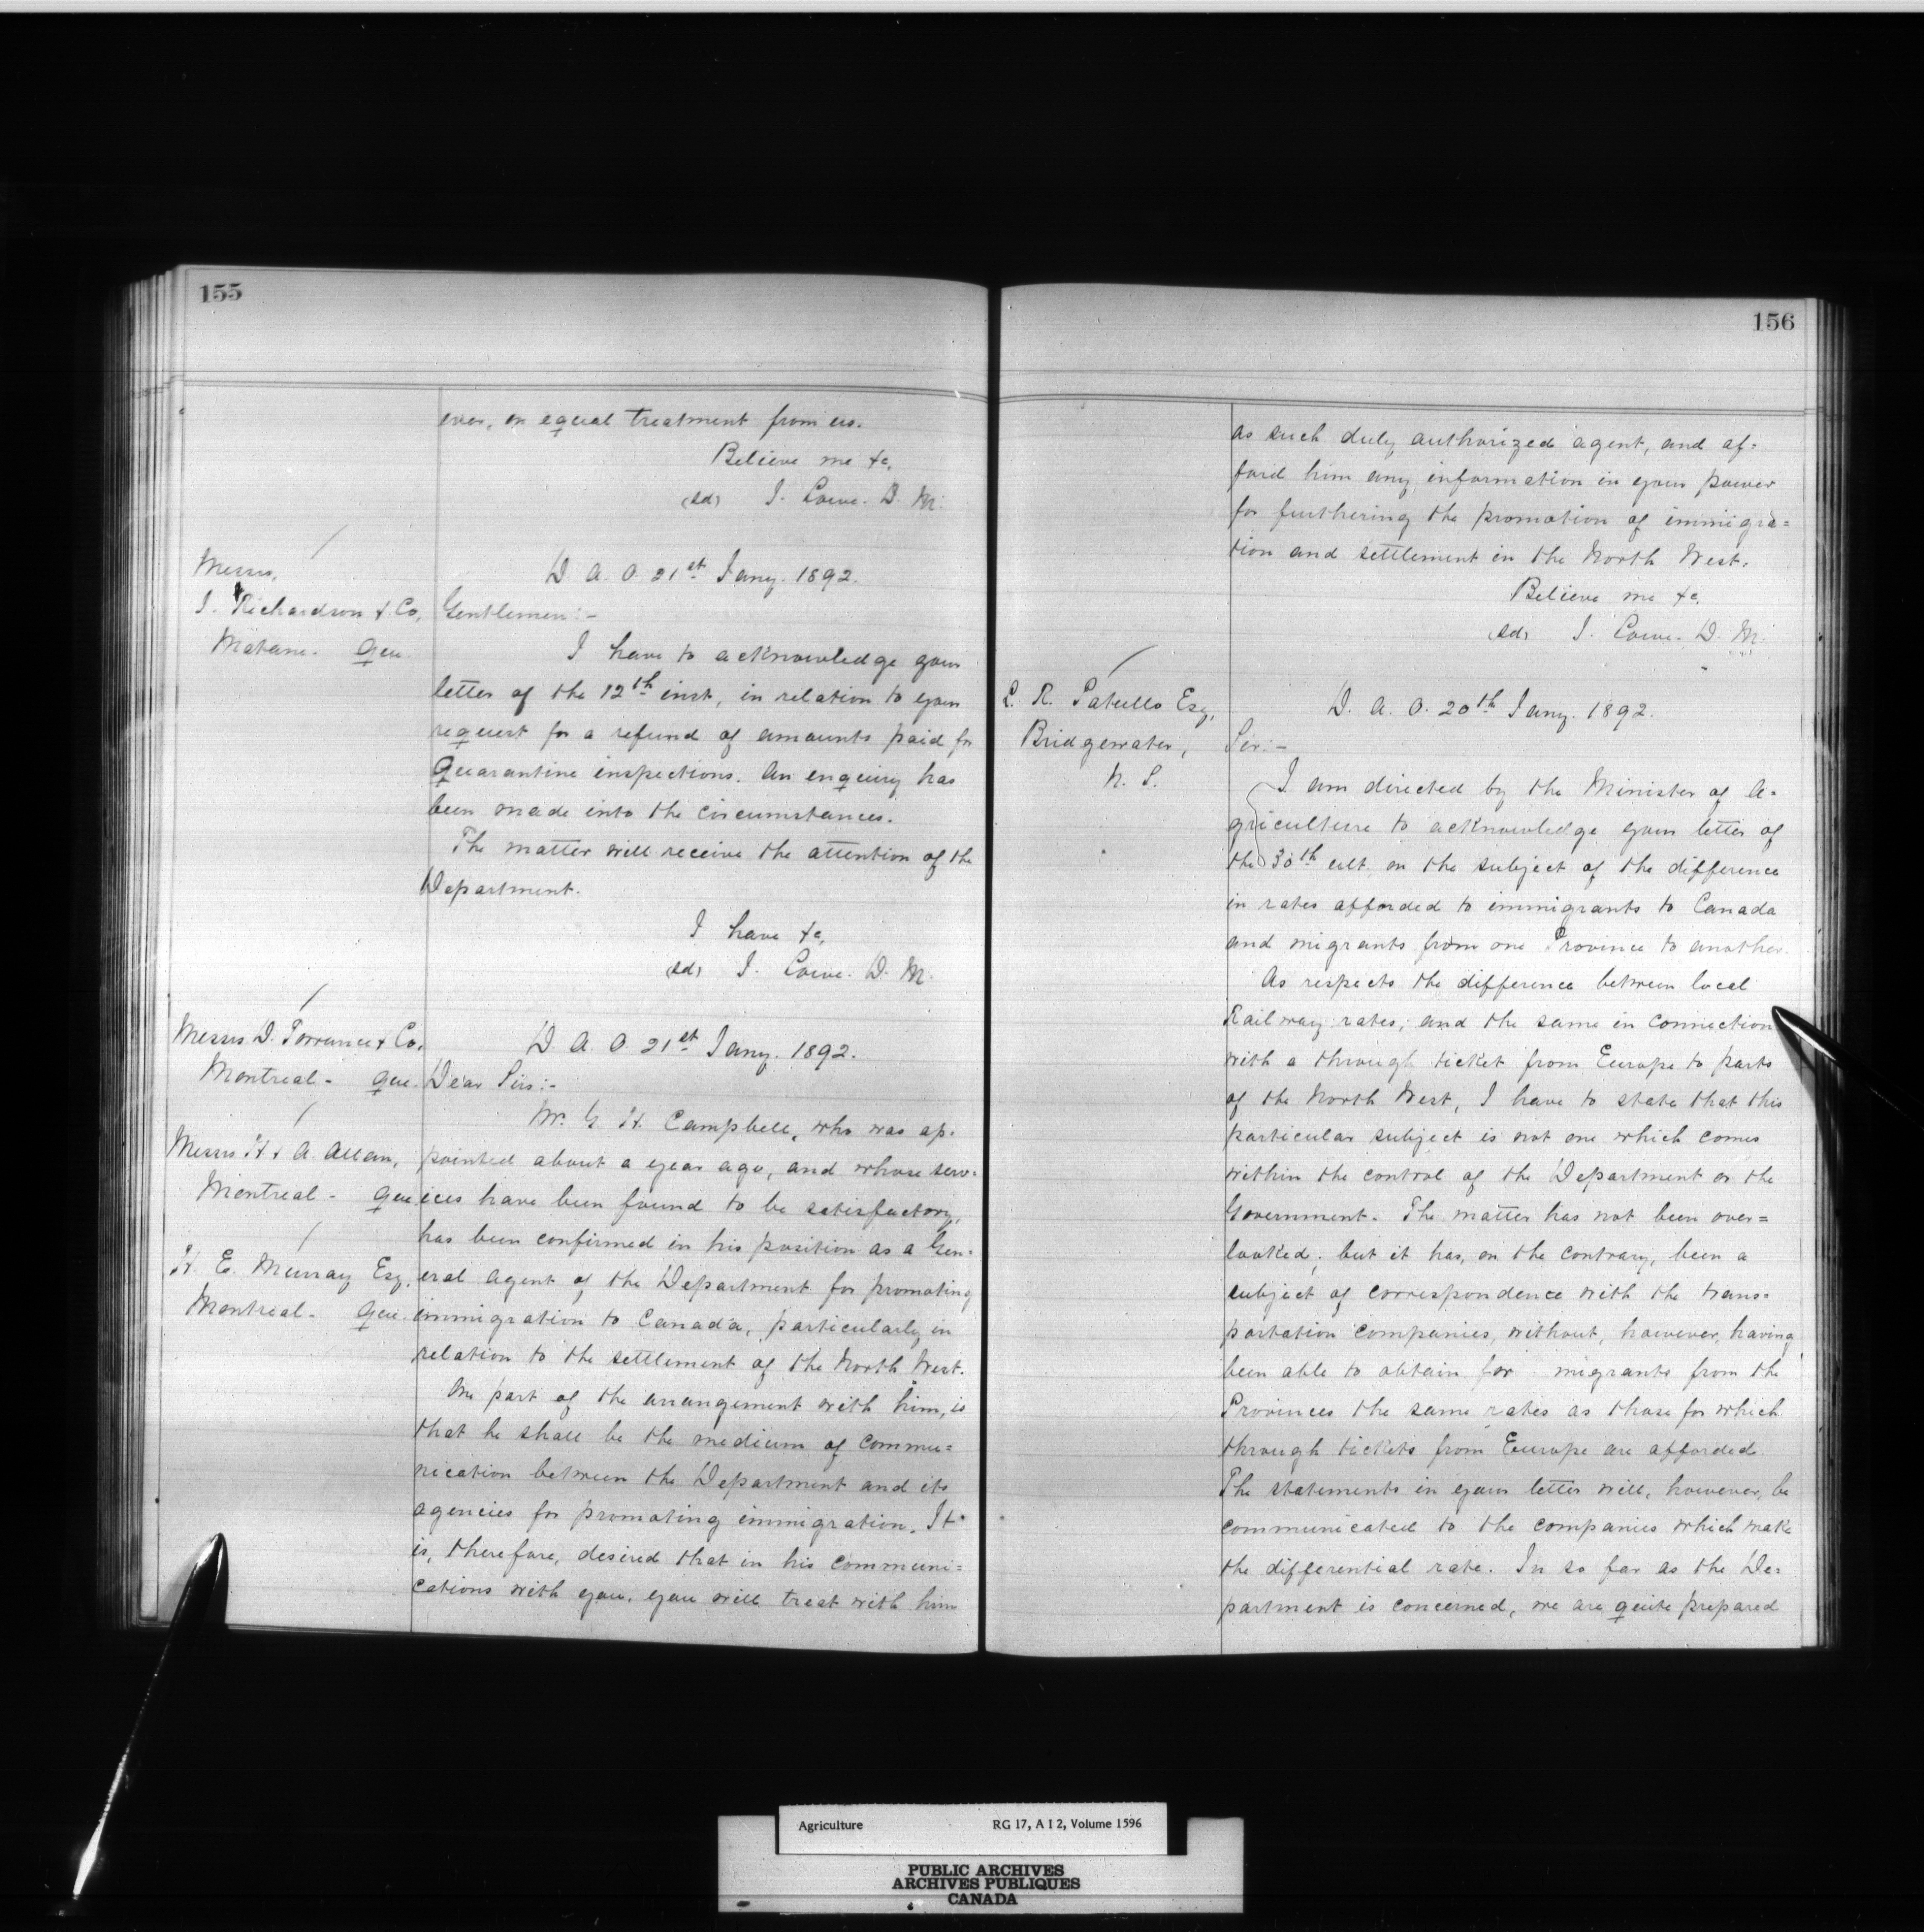 155
ever, on equal treatment from us.
Believe me &c,
(sd) J. Lowe. D. M.
Messrs,
J. Richardson & Co,
Matane. Que.
D. A. O. 21st Jany. 1892.
Gentlemen:-
I have to acknowledge your
letter of the 12th inst, in relation to your
request for a refund of amounts paid for
Quarantine inspections. An enquiry has
been made into the circumstances.
The matter will receive the attention of the
Department.
I have &c,
(sd) J. Lowe. D. M.
Messrs D. Torrance & Co,
Montreal - Que.
Messrs H. & A. Allan,
Montreal - Que
H. E. Murray Esq.
Montreal - Que.
D. A. O. 21st Jany. 1892.
Dear Sirs:-
Mr. G. H. Campbell, who was ap-
pointed about a year ago, and whose serv-
ices have been found to be satisfactory,
has been confirmed in his position as a Gen-
eral Agent of the Department for promoting
immigration to Canada, particularly in
relation to the settlement of the North West.
One part of the arrangement with him, is
that he shall be the medium of commu=
nication between the Department and its
agencies for promoting immigration. It
is, therefore, desired that in his communi=
cations with you, you will treat with him
156
as such duly authorized agent, and af=
ford him any information in your power
for furthering the promotion of immigra=
tion and settlement in the North West.
Believe me &c.
(sd) J. Lowe. D. M.
L. R. Patullo Esq,
Bridgewater,
N. S.
D. A. O. 20th Jany. 1892.
Sir:-
I am directed by the Minister of A-
griculture to acknowledge your letter of
the 30th ult. on the subject of the difference
in rates afforded to immigrants to Canada
and migrants from one Province to another.
As respects the difference between local
Railway rates, and the same in connection
with a through ticket from Europe to parts
of the North West, I have to state that this
particular subject is not one which comes
within the control of the Department or the
Government. The matter has not been over=
looked; but it has, on the contrary, been a
subject of correspondence with the trans=
portation companies, without, however, having
been able to obtain for migrants from the
Provinces the same rates as those for which
through tickets from Europe are afforded.
The statements in your letter will, however, be
communicated to the companies which make
the differential rate. In so far as the De=
partment is concerned, we are quite prepared
Agriculture RG 17, A I 2, Volume 1596
PUBLIC ARCHIVES
ARCHIVES PUBLIQUES
CANADA